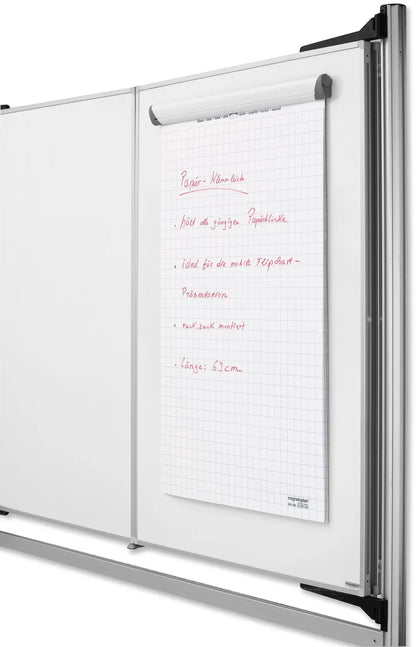 Papier-Klemmleiste
• hält alle gängigen Papierblöcke
• ideal für die mobile Flipchart-
Präsentation
• ruck, zuck montiert
• Länge: 63 cm
magnetoplan